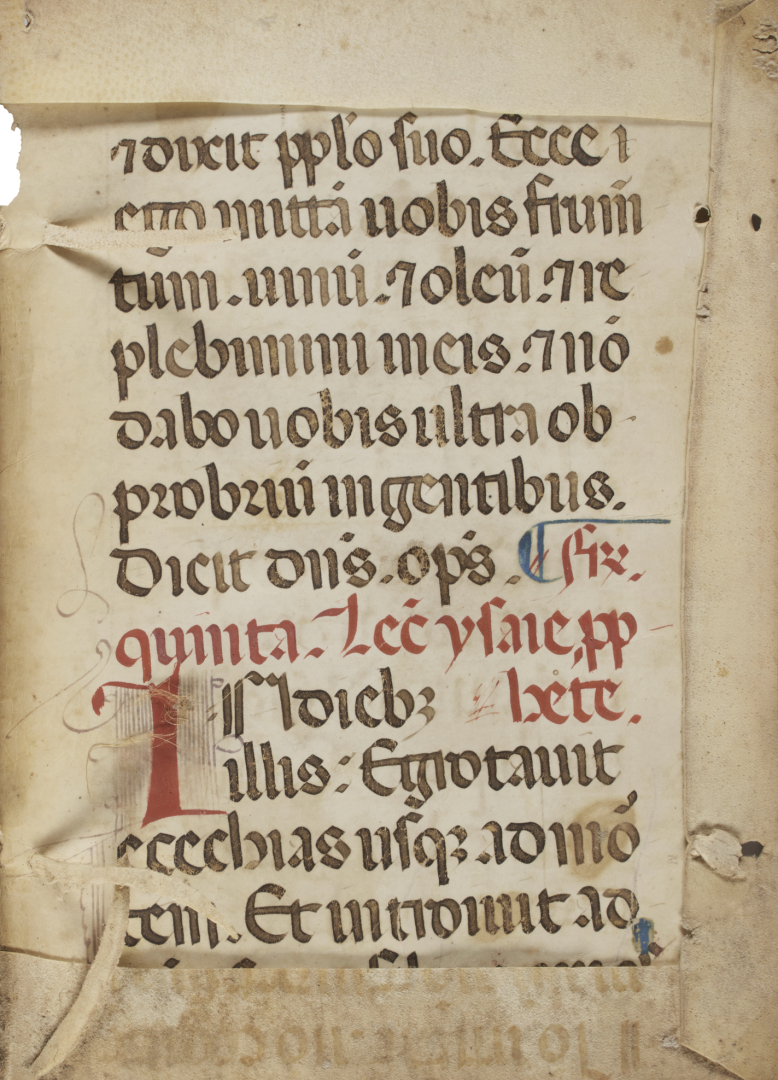 ⁊ dixit pp̄lo ſuo. Ecce i
ego mittā uobis frum̄
tūm . uinū .⁊ oleū .⁊ re
plebimini in eis .⁊ nō
dabo uobis ultra ob
probriū in gentibus.
Dicit dn̄s . op̄s . ¶ fīr.
quinta. Lec̄ yſaie pp
IN diebꝫ hete.
illis : Egrotauit
ecechias uſqꝫ ad mō
tem. Et introiuit ad